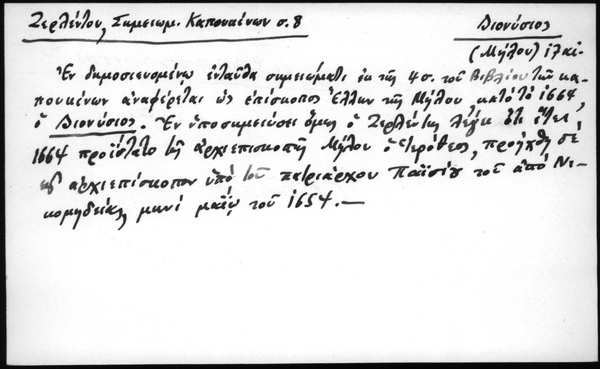 Ζερλέντου, Σημειωμ. Καπουκίνων σ. 8
Διονύσιος
(Μήλου) 17 αἰ.
Ἐν δημοσιευομένῳ ἐνταῦθα σημειώματι ἐκ τῆς 4 σ. τοῦ Βιβλίου τῶν κα-
πουκίνων ἀναφέρεται ὡς ἐπίσκοπος Ἕλλην τῆς Μήλου, κατὰ τὸ 1664,
ὁ Διονύσιος. Ἐν ὑποσημειώσει ὅμως ὁ Ζερλέντης λέγει ὅτι ἐν ἔτει
1664 προΐστατο τῆς ἀρχιεπισκοπῆς Μήλου ὁ Ἱερόθεος, προήχθη δὲ
εἰς ἀρχιεπίσκοπον ὑπὸ τοῦ πατριάρχου Παϊσίου τοῦ ἀπὸ Νι-
κομηδείας, μηνὶ μαΐῳ τοῦ 1654.—